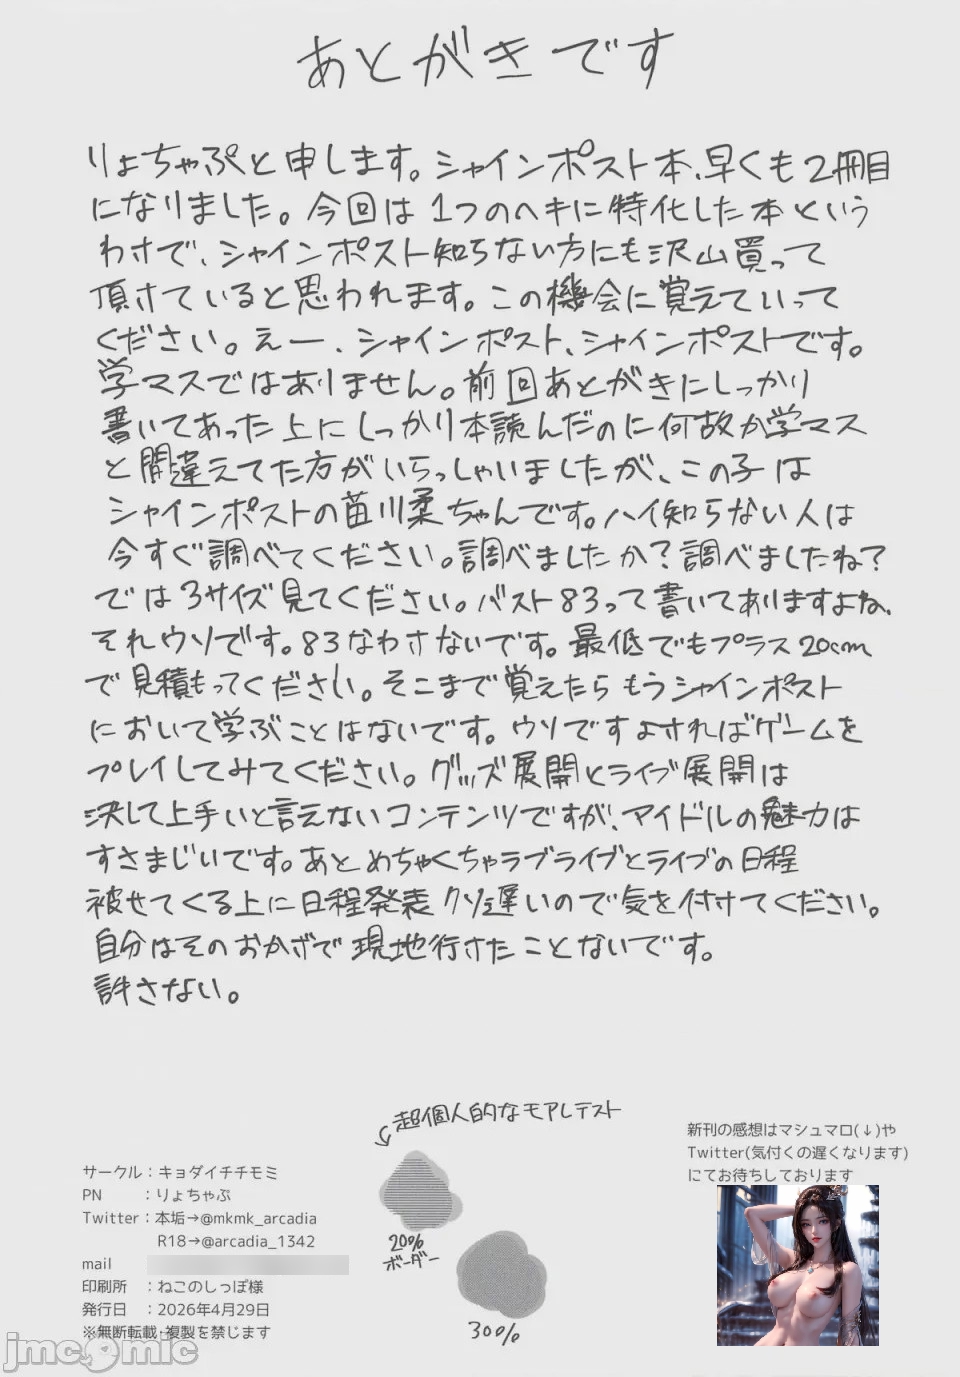 あとがきです
りょちゃぷと申します。シャインポスト本、早くも2冊目
になりました。今回は1つのヘキに特化した本という
わけで、シャインポスト知らない方にも沢山買って
頂けていると思われます。この機会に覚えていって
ください。えー、シャインポスト、シャインポストです。
学マスではありません。前回あとがきにしっかり
書いてあった上にしっかり本読んだのに何故か学マス
と間違えてた方がいらっしゃいましたが、この子は
シャインポストの苗川柔ちゃんです。ハイ知らない人は
今すぐ調べてください。調べましたか?調べましたね?
では3サイズ見てください。バスト83って書いてありますよね、
それウソです。83なわけないです。最低でもプラス20cm
で見積もってください。そこまで覚えたらもうシャインポスト
において学ぶことはないです。ウソですよければゲームを
プレイしてみてください。グッズ展開とライブ展開は
決して上手いと言えないコンテンツですが、アイドルの魅力は
すさまじいです。あとめちゃくちゃラブライブとライブの日程
被せてくる上に日程発表クソ遅いので気を付けてください。
自分はそのおかげで現地行けたことないです。
許さない。
超個人的なモアレテスト
20%
ボーダー
30%
サークル:キョダイチチモミ
PN :りょちゃぷ
Twitter:本垢→@mkmk_arcadia
R18→@arcadia_1342
mail
印刷所 :ねこのしっぽ様
発行日 :2026年4月29日
※無断転載・複製を禁じます
新刊の感想はマシュマロ(↓)や
Twitter(気付くの遅くなります)
にてお待ちしております
jmcomic